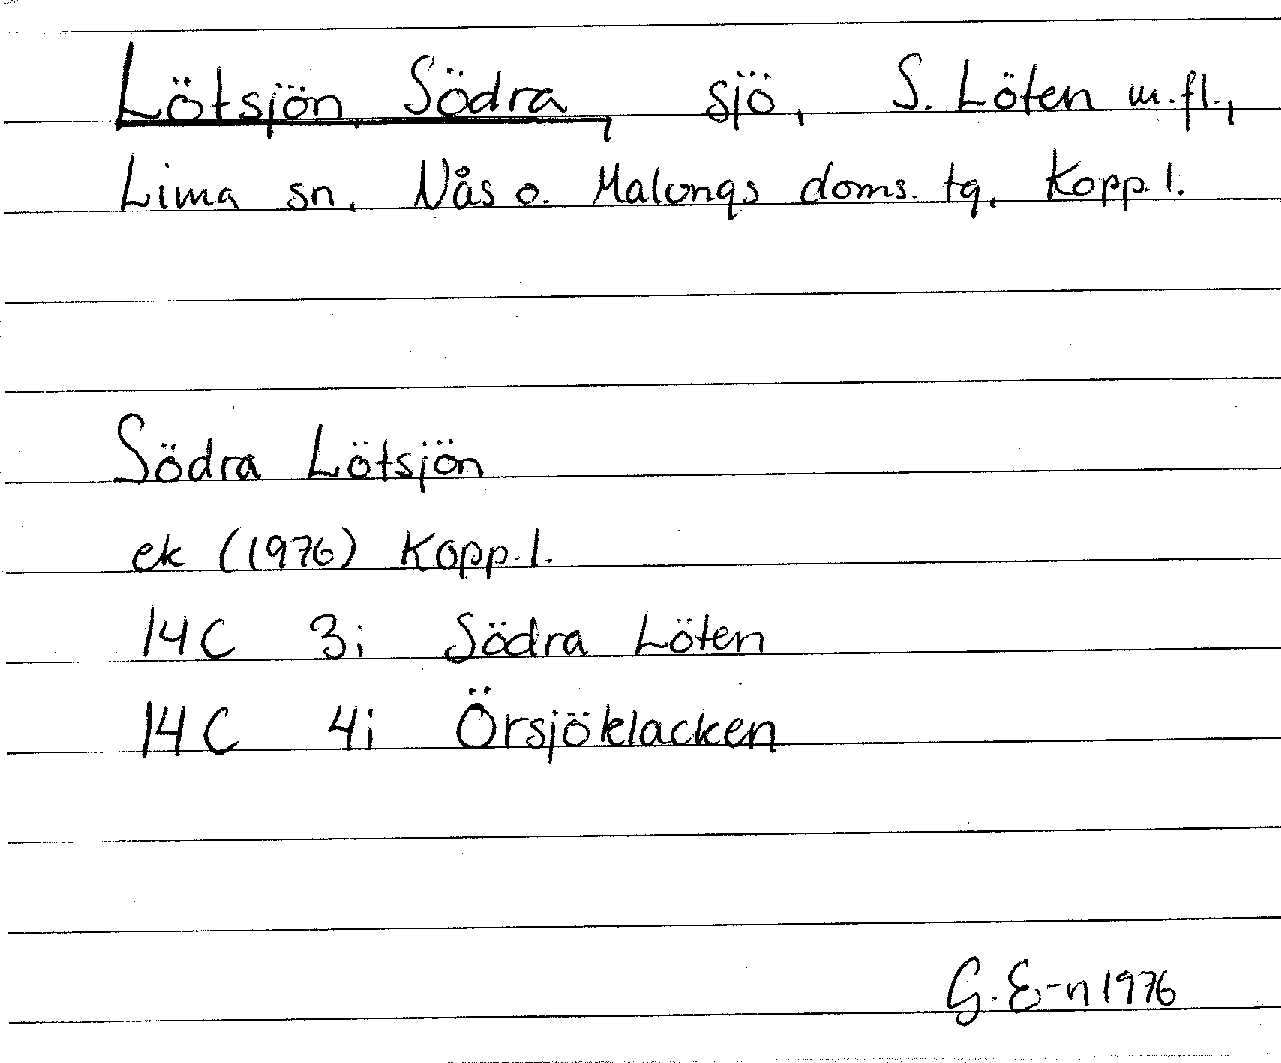 Lötsjön, Södra, sjö, S. Löten m.fl.,
Lima sn. Nås o. Malungs doms. tg. Kopp l.
Södra Lötsjön
ek (1976) Kopp. l.
14C 3i Södra Löten
14C 4i Örsjöklacken
G. E-n 1976